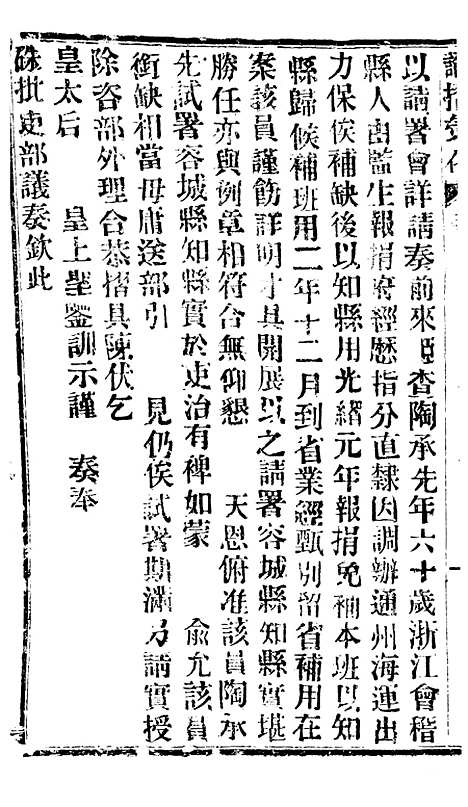 以請署會詳請奏前來臣查陶承先年六十歲浙江會稽
縣人由監生報捐府經歷指分直隸因調辦通州海運出
力保俟補缺後以知縣用光緒元年報捐免補本班以知
縣歸候補班用二年十二月到省業經甄別留省補用在
案該員謹飭詳明才具開展以之請署容城縣知縣實堪
勝任亦與例章相符合無仰懇 天恩俯准該員陶承
先試署容城縣知縣實於吏治有裨如蒙 俞允該員
銜缺相當毋庸送部引 見仍俟試署期滿另請實授
除咨部外理合恭摺具陳伏乞
皇太后 皇上聖鑒訓示謹 奏奉
硃批吏部議奏欽此